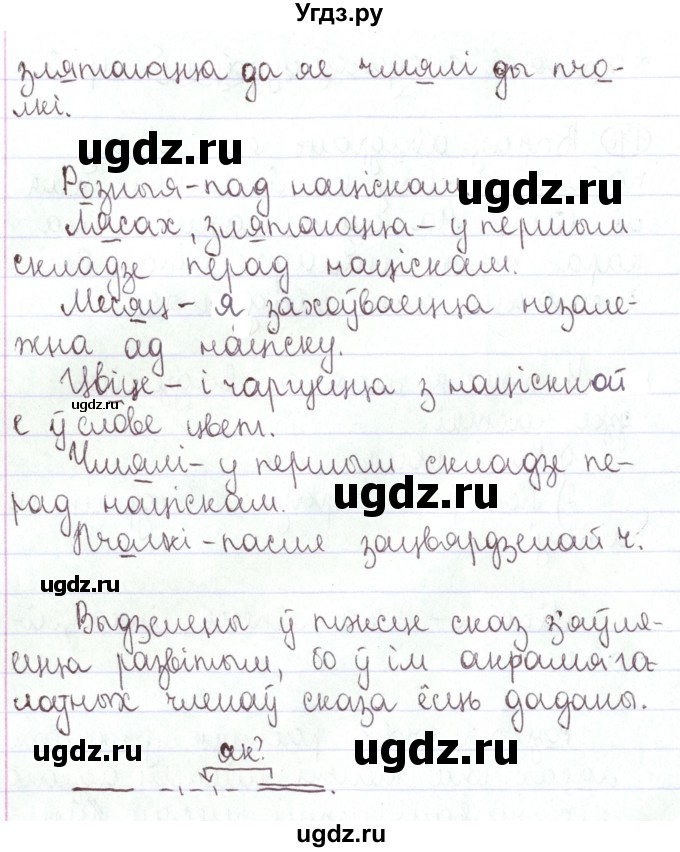 Угдз.ру
злятаюцца да яе чмялі ды пчо-
лкі.
ugdz.ru
ugdz.ru
Розныя - пад націскам.
Лясах, злятаюцца - у першым
складзе перад націскам.
Месяц - я захоўваецца незале-
жна ад націску.
Цвіце - і чаргуецца з націскной
ugdz.ru
е ў слове цвет.
Чмялі - у першым складзе пе-
рад націскам.
ugdz.ru
Пчолкі - пасля зацвярдзелай ч.
ugdz.ru
Выдзелены ў тэксце сказ з'яўля-
ецца развітым, бо ў ім акрамя га-
лоўных членаў сказа ёсць даданы.
як?
ugdz.ru
ugdz.ru
ugdz.ru